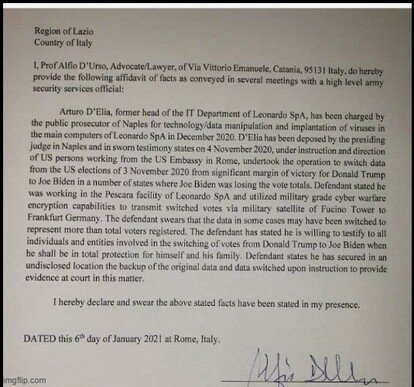 Region of Lazio
Country of Italy
I, Prof Alfio D'Urso, Advocate/Lawyer, of Via Vittorio Emanuele, Catania, 95131 Italy, do hereby
provide the following affidavit of facts as conveyed in several meetings with a high level army
security services official:
Arturo D'Elia, former head of the IT Department of Leonardo SpA, has been charged by
the public prosecutor of Naples for technology/data manipulation and implantation of viruses in
the main computers of Leonardo SpA in December 2020. D'Elia has been deposed by the presiding
judge in Naples and in sworn testimony states on 4 November 2020, under instruction and direction
of US persons working from the US Embassy in Rome, undertook the operation to switch data
from the US elections of 3 November 2020 from significant margin of victory for Donald Trump
to Joe Biden in a number of states where Joe Biden was losing the vote totals. Defendant stated he
was working in the Pescara facility of Leonardo SpA and utilized military grade cyber warfare
encryption capabilities to transmit switched votes via military satellite of Fucino Tower to
Frankfurt Germany. The defendant swears that the data in some cases may have been switched to
represent more than total voters registered. The defendant has stated he is willing to testify to all
individuals and entities involved in the switching of votes from Donald Trump to Joe Biden when
he shall be in total protection for himself and his family. Defendant states he has secured in an
undisclosed location the backup of the original data and data switched upon instruction to provide
evidence at court in this matter.
I hereby declare and swear the above stated facts have been stated in my presence.
DATED this 6th day of January 2021 at Rome, Italy.
imgflip.com